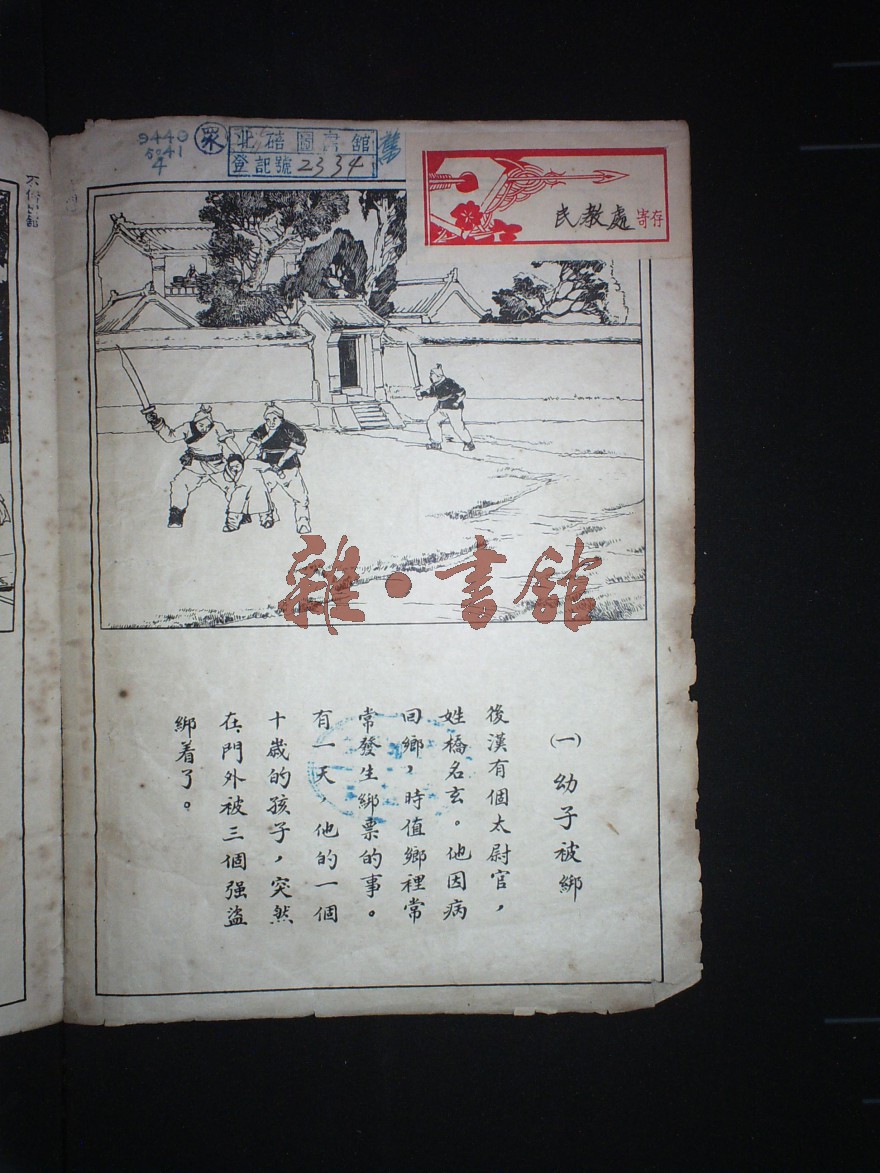 9440
5041
4
眾
北碚圖書館
登記號 2334
舊
民教處 寄存
雜·書館
㈠ 幼子被綁
後漢有個太尉官，
姓橋名玄。他因病
回鄉，時值鄉裡常
常發生綁票的事。
有一天，他的一個
十歲的孩子，突然
在門外被三個强盜
綁着了。